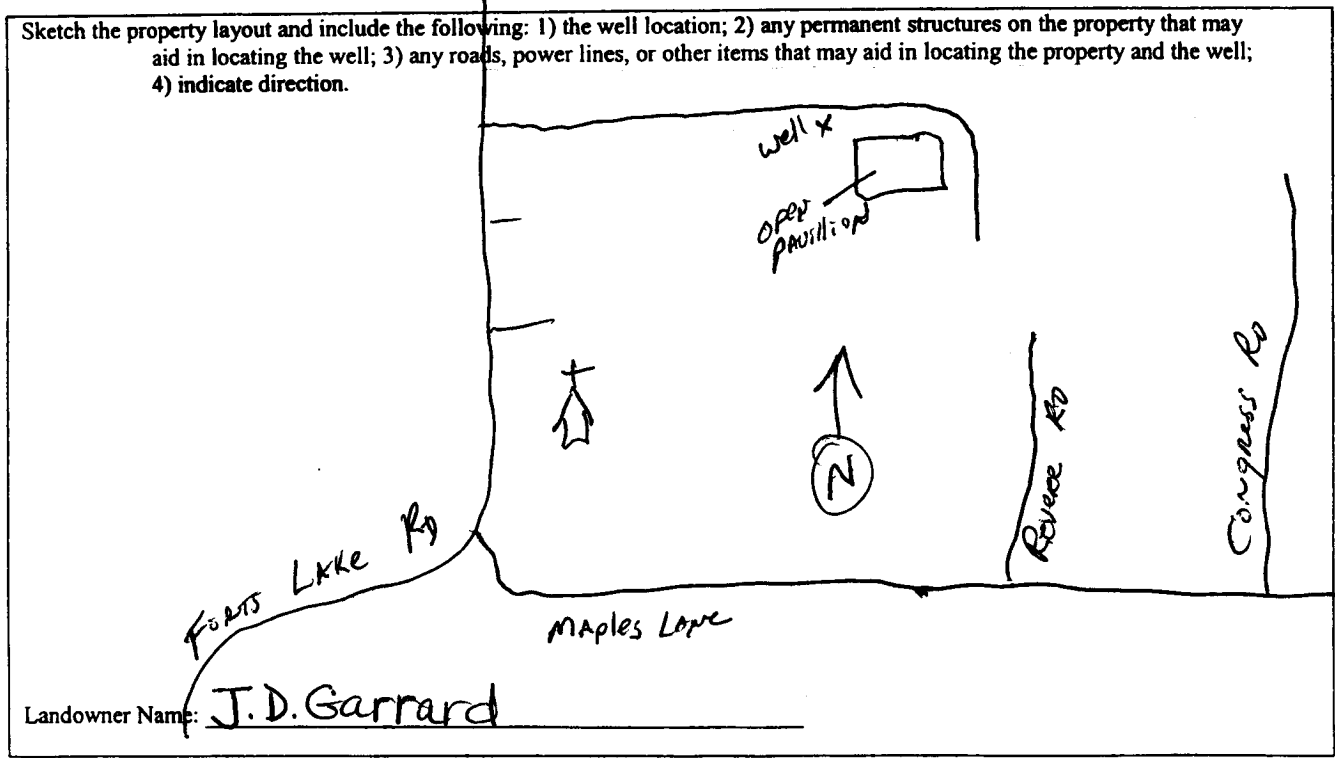 Sketch the property layout and include the following: 1) the well location; 2) any permanent structures on the property that may
aid in locating the well; 3) any roads, power lines, or other items that may aid in locating the property and the well;
4) indicate direction.
well x
open
pavillion
N
Reverse RD
Congress RD
Forts Lake RD
Maples Lane
Landowner Name: J.D. Garrard